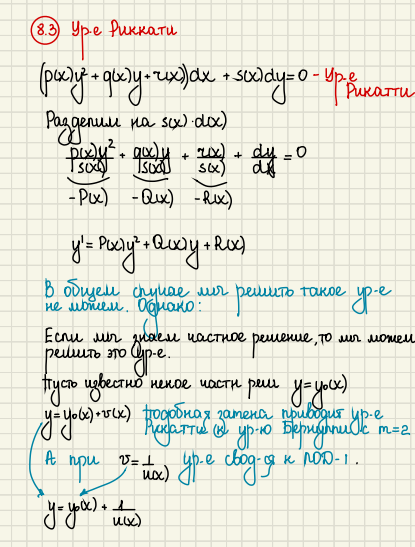 8.3 Ур-е Риккати
(p(x)y² + q(x)y + r(x))dx + s(x)dy = 0 - Ур-е
Рикатти
Разделим на s(x)·d(x)
p(x)y²/s(x) + q(x)y/s(x) + r(x)/s(x) + dy/dx = 0
-P(x) -Q(x) -R(x)
y' = P(x)y² + Q(x)y + R(x)
В общем случае мы решить такое ур-е
не можем. Однако:
Если мы знаем частное решение, то мы можем
решить это ур-е.
Пусть известно некое частн реш y = y₀(x)
y = y₀(x) + v(x) Подобная замена приводит ур-е
Рикатти к ур-ю Бернулли с m=2
А при v = 1/u(x) ур-е свод-ся к ЛОД-1.
y = y₀(x) + 1/u(x)